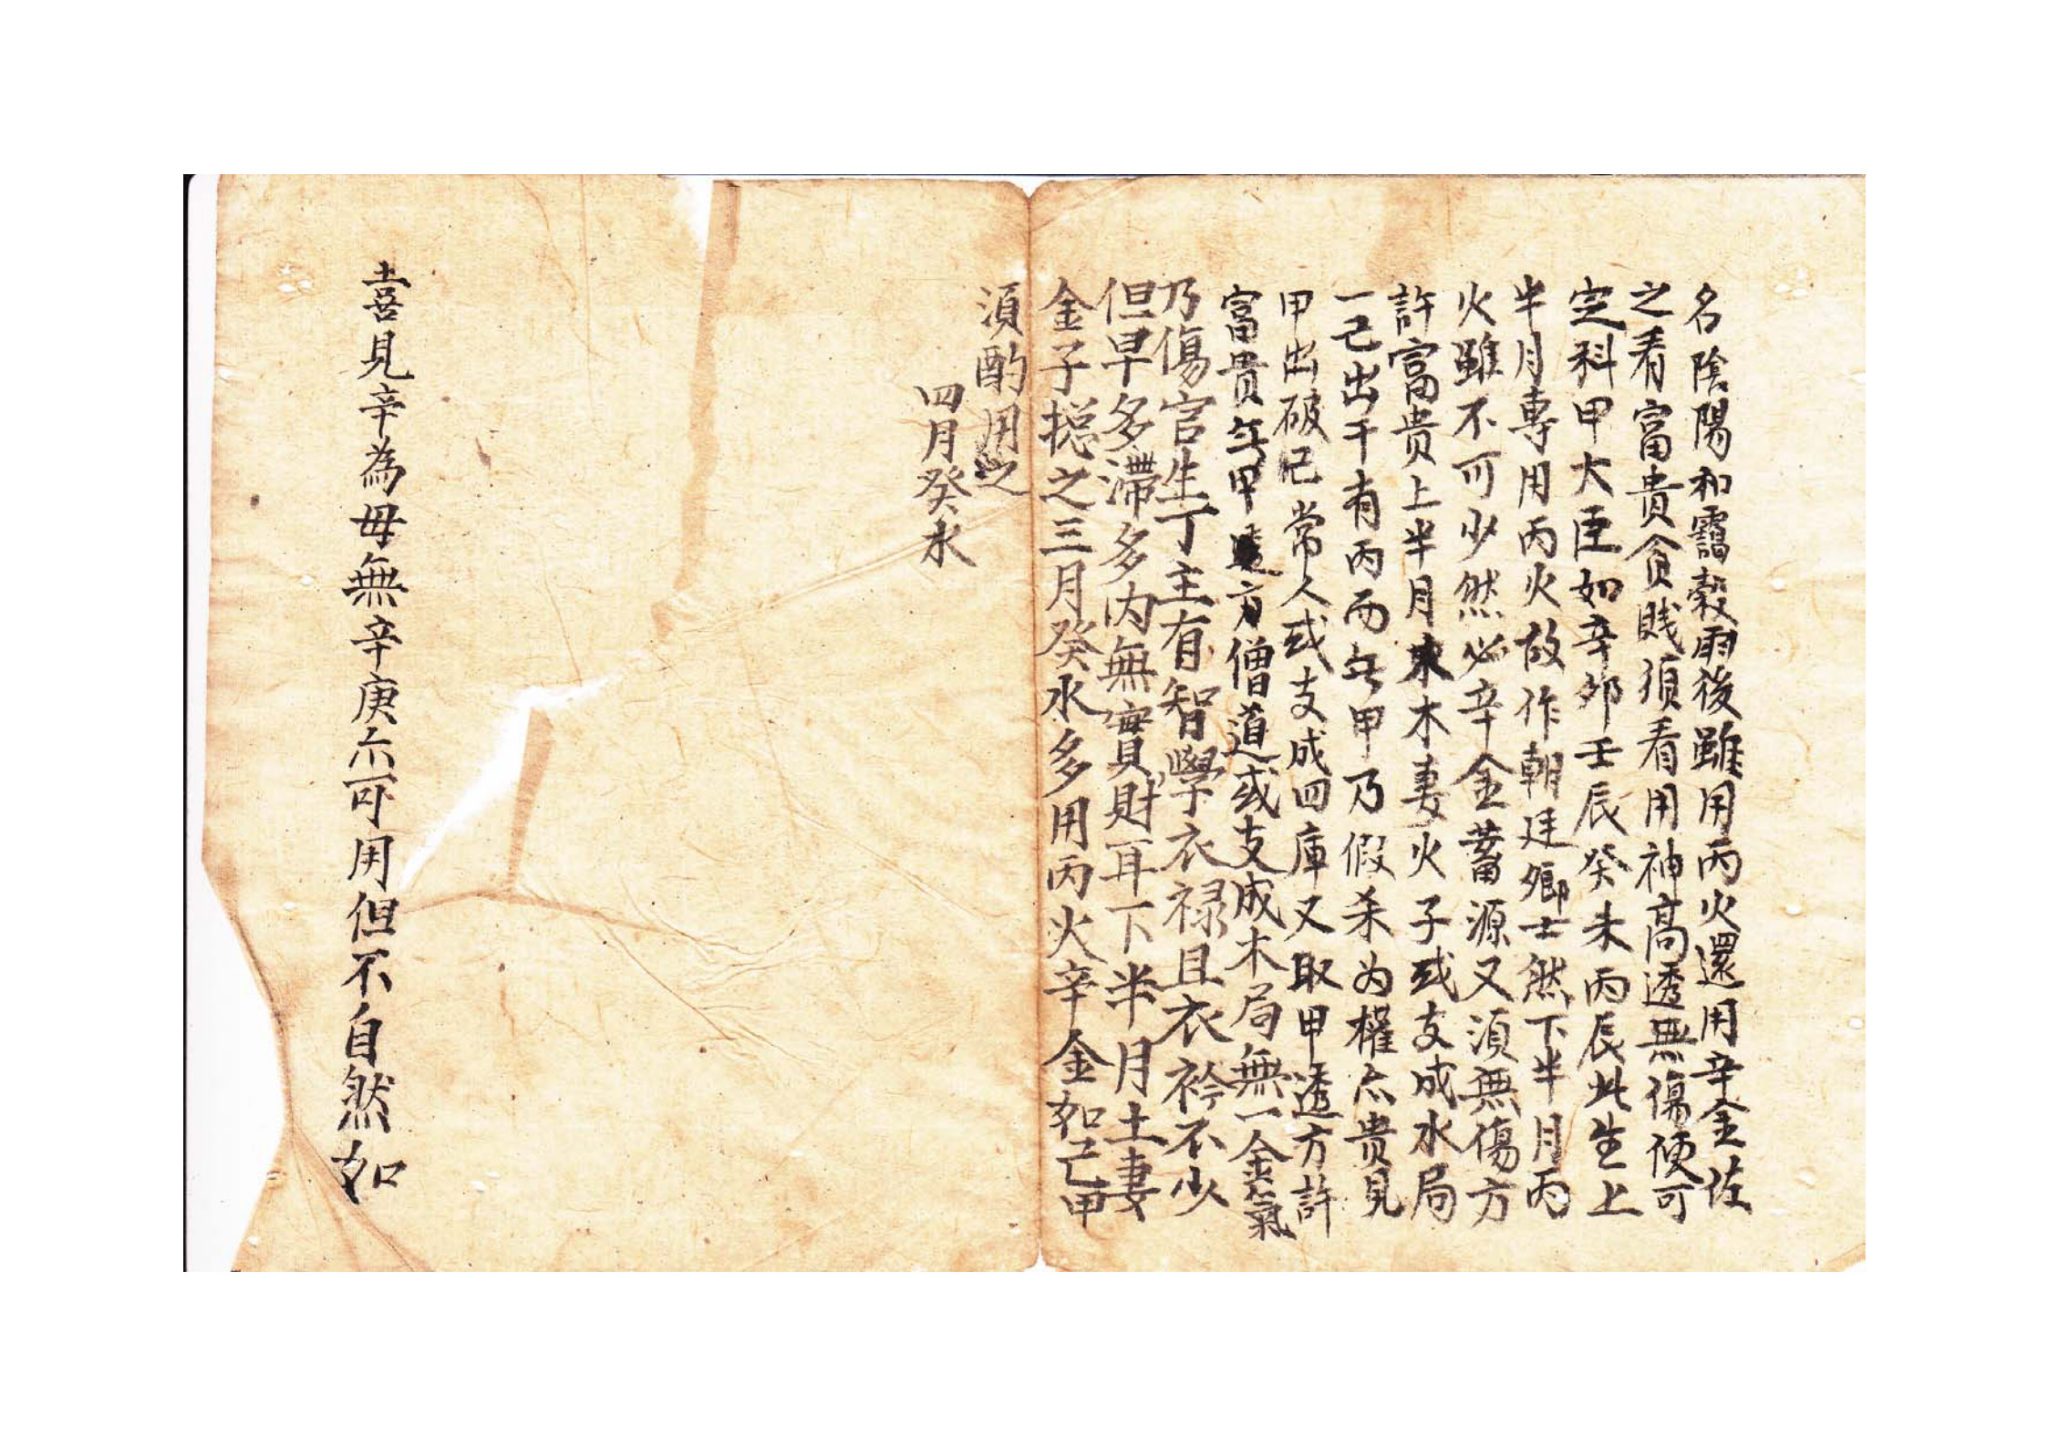 名陰陽和靄穀雨後雖用丙火還用辛金佐
之看富貴貪賎湏看用神高透無傷便可
定科甲大臣如辛卯壬辰癸未丙辰此生上
半月專用丙火故作朝廷鄉士然下半月丙
火雖不可少然必辛金蓄源又湏無傷方
許富贵上半月木妻火子或支成水局
一己出干有丙而无甲乃假杀为權亦贵見
甲出破己常人或支成四庫又取甲透方許
富贵无甲透方僧道或支成木局無一金氣
乃傷官生丁主有智學衣禄且衣衿不少
但早多滯多内無實財耳下半月土妻
金子揔之三月癸水多用丙火辛金如己甲
湏酌用之
四月癸水
喜見辛為毋無辛庚亦可用但不自然如